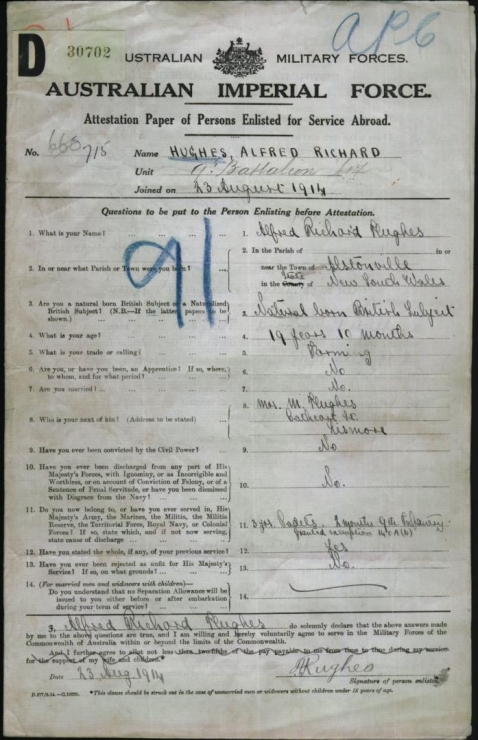 D 30702
USTRALIAN MILITARY FORCES.
AUSTRALIAN IMPERIAL FORCE.
Attestation Paper of Persons Enlisted for Service Abroad.
No. 715 Name HUGHES, ALFRED RICHARD
Unit 9th Battalion
Joined on 23 August 1914
Questions to be put to the Person Enlisting before Attestation.
91
1. What is your Name? 1. Alfred Richard Hughes
2. In or near what Parish or Town were you born? 2. In the Parish of in or
near the Town of Alstonville
in the County of State New South Wales
3. Are you a natural born British Subject or a Naturalized
British Subject? (N.B.—If the latter, papers to be
shown.) 3. Natural born British Subject
4. What is your age? 4. 19 years 10 months
5. What is your trade or calling? 5. Farming
6. Are you, or have you been, an Apprentice? If so, where,
to whom, and for what period? 6. No
7. Are you married? 7. No.
8. Who is your next of kin? (Address to be stated) 8. Mrs. M. Hughes
Cathcart St
Lismore
9. Have you ever been convicted by the Civil Power? 9. No
10. Have you ever been discharged from any part of His
Majesty's Forces, with Ignominy, or as Incorrigible and
Worthless, or on account of Conviction of Felony, or of a
Sentence of Penal Servitude, or have you been dismissed
with Disgrace from the Navy? 10. No.
11. Do you now belong to, or have you ever served in, His
Majesty's Army, the Marines, the Militia, the Militia
Reserve, the Territorial Force, Royal Navy, or Colonial
Forces? If so, state which, and if not now serving,
state cause of discharge 11. 3 yrs. Cadets. 2 months 9th Infantry
granted exemption
12. Have you stated the whole, if any, of your previous service? 12. Yes
13. Have you ever been rejected as unfit for His Majesty's
Service? If so, on what grounds? 13. No.
14. (For married men and widowers with children)—
Do you understand that no Separation Allowance will be
issued to you either before or after embarkation
during your term of service? 14.
I, Alfred Richard Hughes do solemnly declare that the above answers made
by me to the above questions are true, and I am willing and hereby voluntarily agree to serve in the Military Forces of the
Commonwealth of Australia within or beyond the limits of the Commonwealth.
And I further agree to allot not less than two-fifths of the pay payable to me from time to time during my service
for the support of my wife and children.*
Date 23 Aug 1914 ARHughes
Signature of person enlisted.
*This clause should be struck out in the case of unmarried men or widowers without children under 18 years of age.